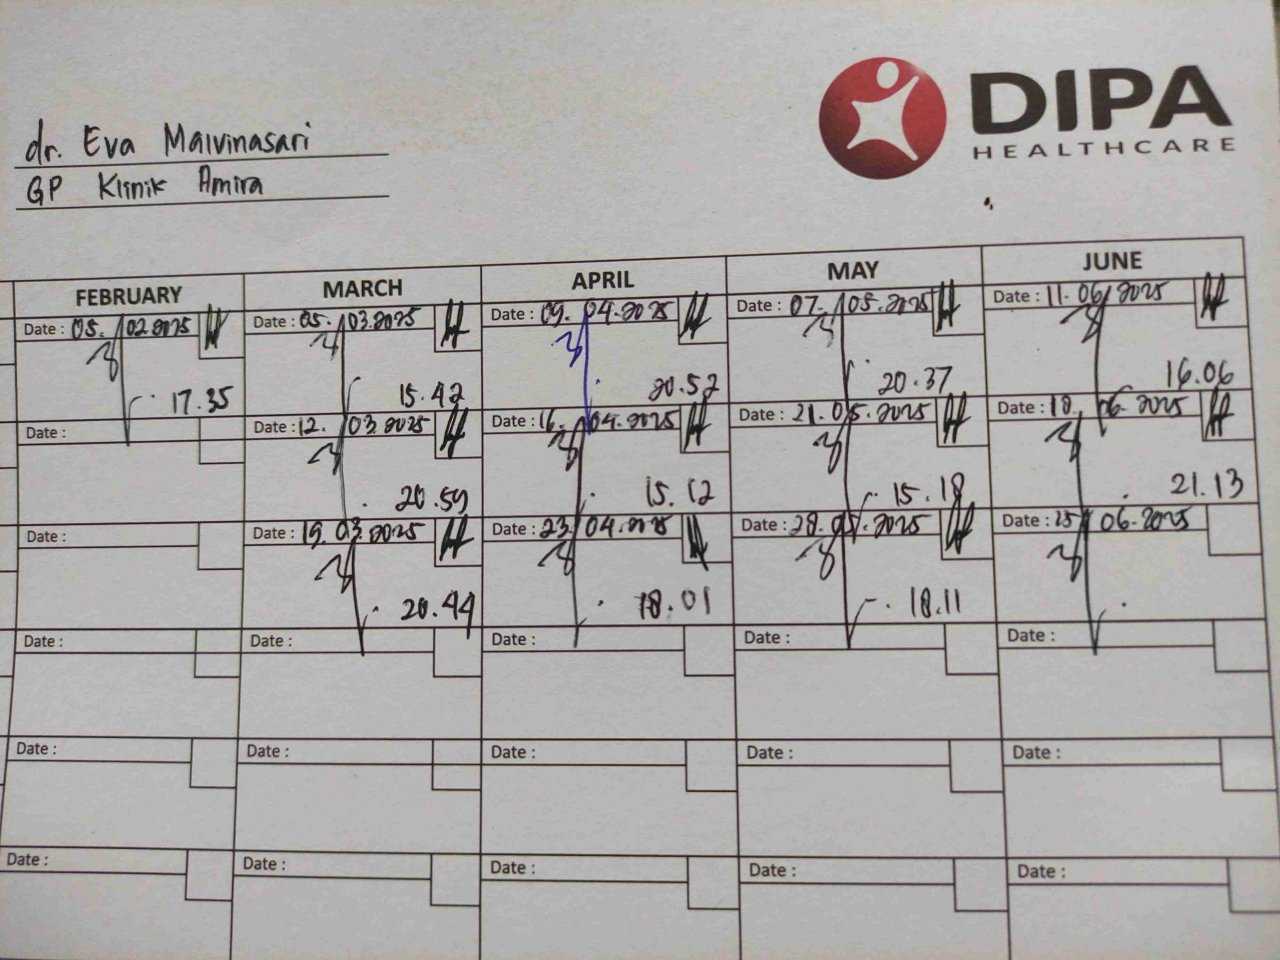 dr. Eva Malvinasari
GP Klinik Amira
DIPA
HEALTHCARE
FEBRUARY MARCH APRIL MAY JUNE
Date : 05. 02 2025 Date : 05. 03.2025 Date : 09. 04.2025 Date : 07. 05.2025 Date : 11. 06 2025
17.35 15.42 20.52 20.37 16.06
Date : Date : 12. 03 2025 Date : 16. 04.2025 Date : 21.05.2025 Date : 18. 06.2025
20.59 15.12 15.18 21.13
Date : Date : 19.03.2025 Date : 23. 04.2025 Date : 28.05.2025 Date : 25 06.2025
20.44 18.01 18.11
Date : Date : Date : Date : Date :
Date : Date : Date : Date : Date :
Date : Date : Date : Date : Date :